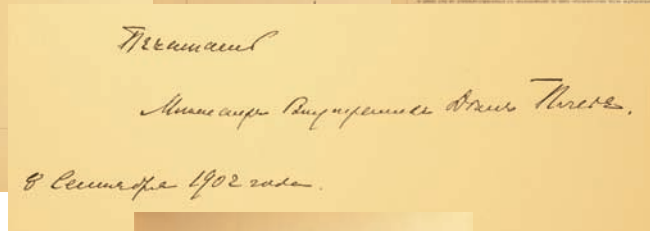 Печатать
Министръ Внутреннихъ Дѣлъ Плеве.
8 Сентября 1902 года.